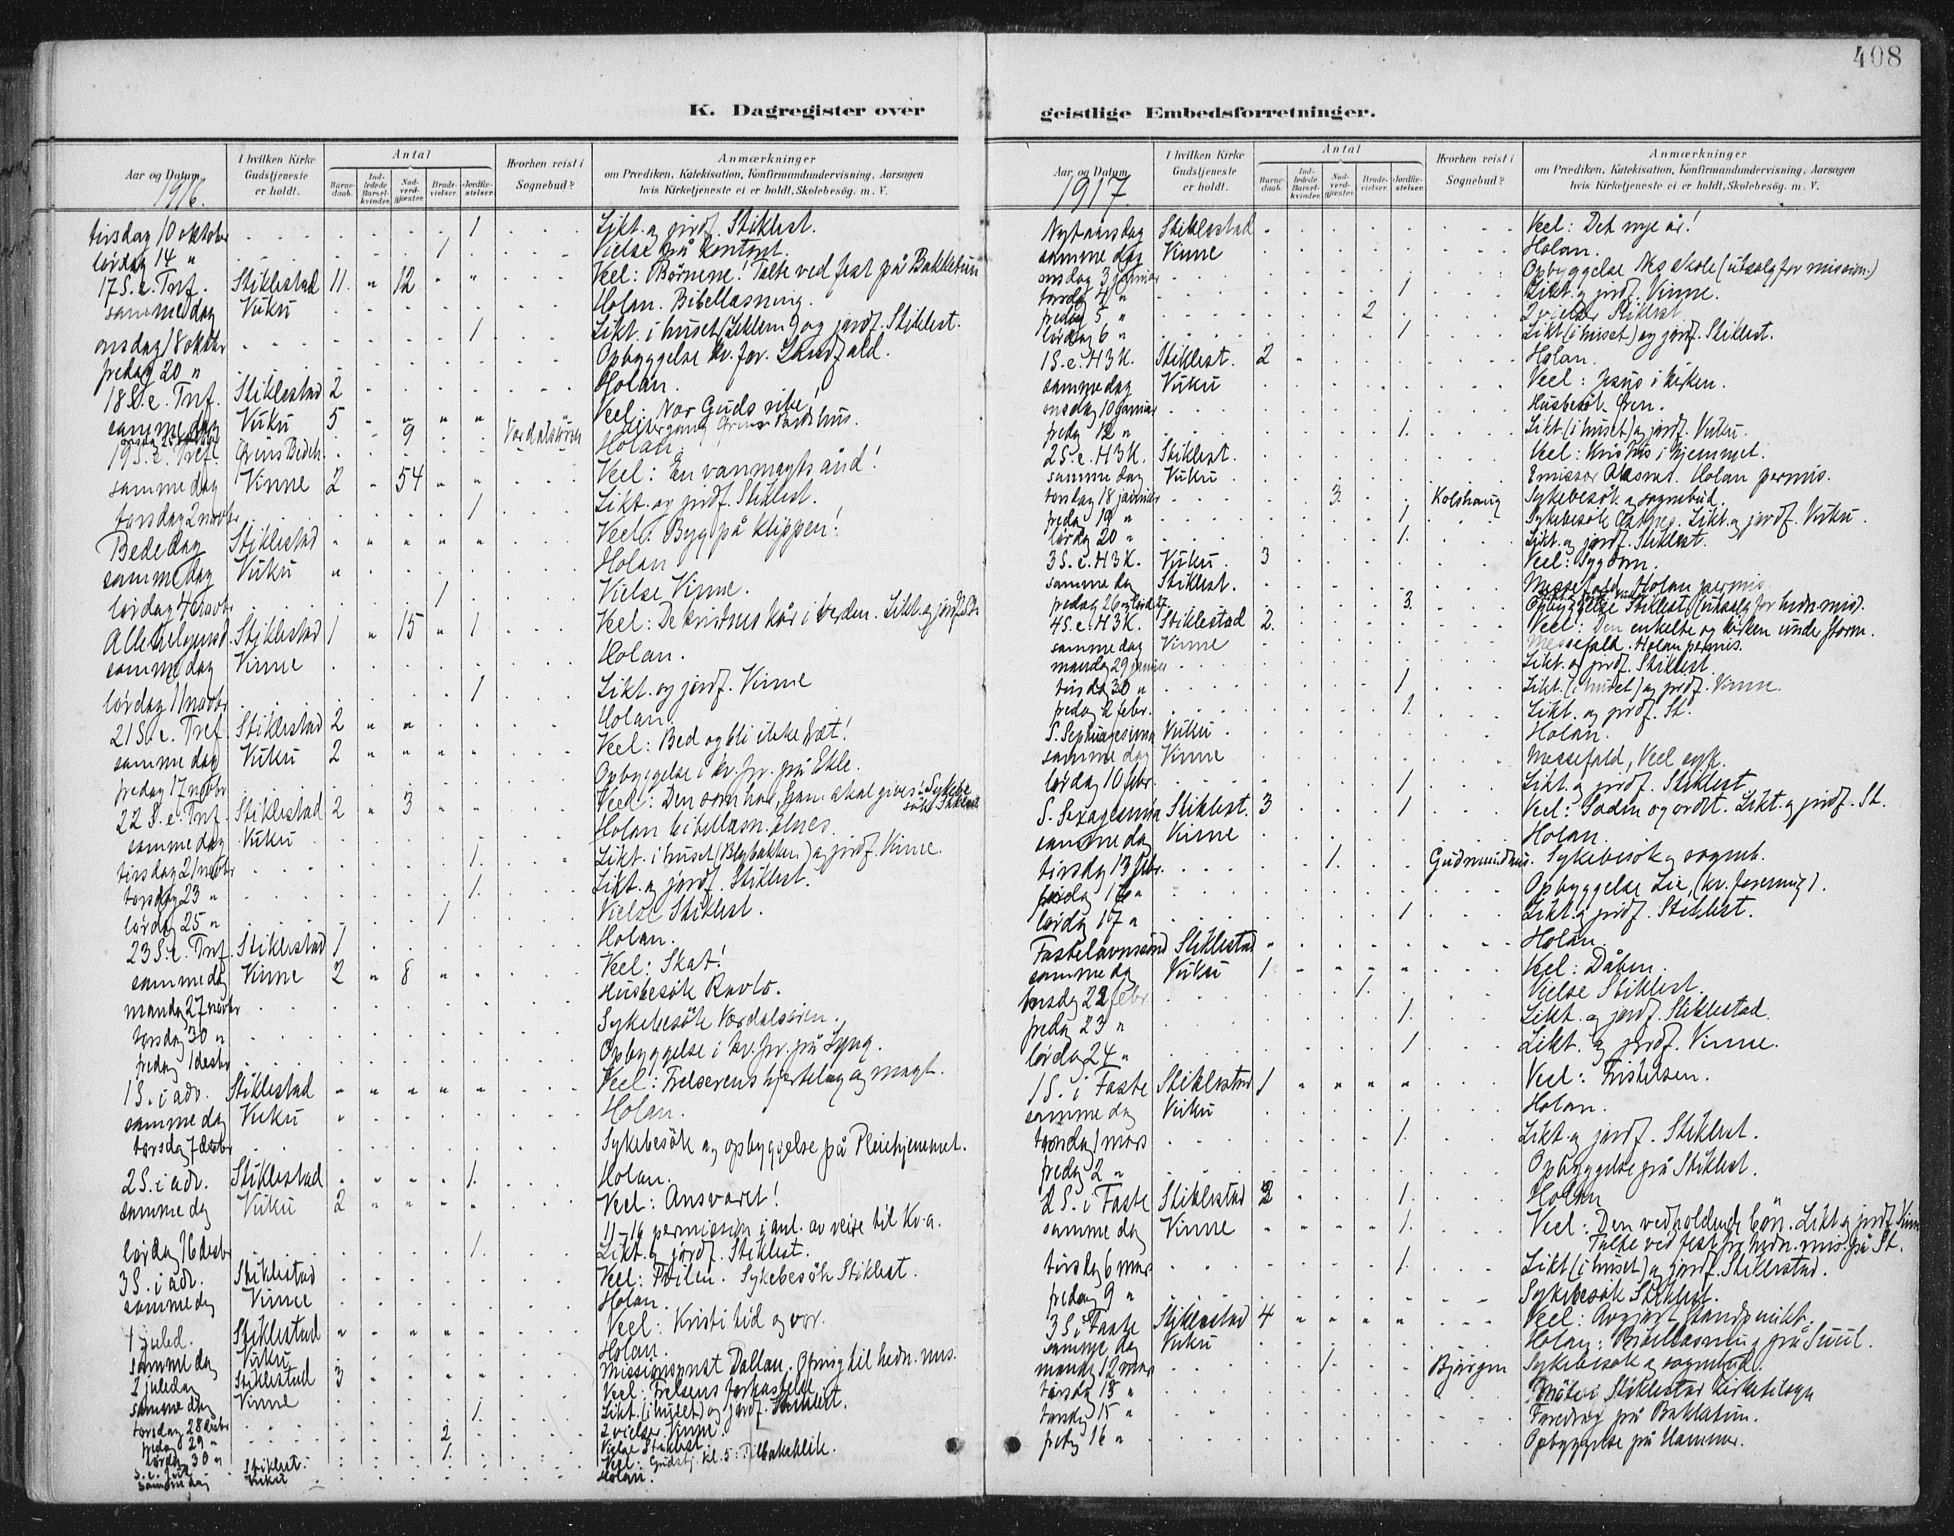 408
K. Dagregister over
geistlige Embedsforretninger.
Aar og Datum
I hvilken Kirke Gudstjeneste er holdt.
Antal
Barnedaab.
Indledede Barselkvinder.
Nadverdgjæster.
Brudevielser.
Jordfæstelser.
Hvorhen reist i Sognebud?
Anmærkninger
om Prædiken, Katekisation, Konfirmandundervisning, Aarsagen
hvis Kirketjeneste ei er holdt, Skolebesøg. m. V.
1916.
tirsdag 10 oktober 1. Likt. og jordf. Stiklest.
lørdag 14 " 1 Vielse på kontoret.
17 S. e. Tref. Stiklestad 11. " 12 " " Veel: Børnene! Talte ved fest på Bakketun
samme dag Vuku Holan. Bibellæsning.
onsdag 18 oktbr 1. Likt. i huset og jordf. Stiklest.
fredag 20 " Opbyggelse kv. for.
18 S. e. Tref. Stiklestad 2 Holan.
samme dag Vuku 5 Veel: Når Guds rike!
9 Værdalsøren
19 S. e. Tref. Ørens Bedeh. Holan.
samme dag Vinne 2 " 54 " " Veel: En vanmagts ånd!
torsdag 2 novbr. 1 Likt. og jordf. Stiklest.
Bededag Stiklestad " " " " " Veel: Byg på klippen!
samme dag Vuku " Holan
lørdag 4 novbr 1 Vielse Vinne.
Allehelgensd. Stiklestad 1 " 15 " 1 Veel: De kristnes kår i verden. Likt. og jordf. St.
samme dag Vinne Holan.
lørdag 11 novbr 1 Likt. og jordf. Vinne
21 S. e. Tref Stiklestad 2 " " Holan.
samme dag Vuku 2 " " " " Veel: Bed og bli ikke træt!
fredag 17 novbr Opbyggelse i kv. for. på Ekle.
22 S. e. Tref. Stiklestad 2 " 3 Veel: Den som har, ham skal gives! Sykebesøk Stiklest
samme dag Vuku Holan bibellæsn.
tirsdag 21 novbr 1. Likt. i huset og jordf. Vinne.
torsdag 23 " 1. Likt. og jordf. Stiklest.
lørdag 25 " 1 Vielse Stiklest.
23 S. e. Tref. Stiklestad 1 Holan.
samme dag Vinne 2 " 8 " " Veel: Skat!
mandag 27 novbr Husbesøk
torsdag 30 " Sykebesøk Værdalsøren.
fredag 1 desbr Opbyggelse i kv. for. på
1 S. i adv. Stiklestad " " " " " Veel: Frelserens hjertelag og magt.
samme dag Vuku " Holan.
torsdag 7 desbr Sykebesøk og opbyggelse på Pleiehjemmet.
2 S. i adv. Stiklestad " " " " 1. Holan.
samme dag Vuku 2 " " " " Veel: Ansvaret!
11–16 permission i anl. av reise til
lørdag 16 desbr 1. Likt. og jordf. Stiklest.
3 S. i adv. Stiklestad Veel: Sykebesøk Stiklest.
samme dag Vinne Holan.
1 juled. Stiklestad " " " " " Veel: Kristi tid og vor.
samme dag Vuku Holan.
2 juledag Stiklestad 3 " " " " Missionsprest Dallan. Ofring til hedn. mis.
samme dag Vinne Veel: Frelsens
torsdag 28 desbr 1. Likt. (i huset) og jordf. Stiklest.
fredag 29 " 2 2 vielser Vinne.
lørdag 30 " 1. Vielse Stiklest
S. e. jul Stiklest. Veel: Gudstj. kl. 5: Tilbakeblik.
samme dag Vuku Holan.
Aar og Datum
I hvilken Kirke Gudstjeneste er holdt.
Antal
Barnedaab.
Indledede Barselkvinder.
Nadverdgjæster.
Brudevielser.
Jordfæstelser.
Hvorhen reist i Sognebud?
Anmærkninger
om Prædiken, Katekisation, Konfirmandundervisning, Aarsagen
hvis Kirketjeneste ei er holdt, Skolebesøg. m. V.
1917
Nytaarsdag Stiklestad Veel: Det nye år!
samme dag Vinne Holan.
onsdag 3 januar Opbyggelse Nes skole (utsalg for mission.)
torsdag 4 " 1 Likt. og jordf. Vinne.
fredag 5 " 2 2 vielser Stiklest
lørdag 6 " 1 Likt. (i huset) og jordf. Stiklest.
1 S. e. H3K. Stiklest. 2 Holan.
samme dag Vuku Veel: Jesus i kirken.
onsdag 10 januar Husbesøk Øren.
fredag 12 " 1. Likt. (i huset) og jordf. Vuku.
2 S. e. H3K. Stiklest. Veel: Kristus i hjemmet.
samme dag Vuku Emissær Holan permis.
torsdag 18 januar 3. Kolshaug Sykebesøk og sognebud.
fredag 19 " 1 Sykebesøk Likt. og jordf. Vuku.
lørdag 20 " 1. Likt. og jordf. Stiklest.
3 S. e. H3K. Vuku 3 Veel: Sygdom.
samme dag Stiklest. Messefald. Holan permis.
fredag 26 og lørdag 27 3. Opbyggelse Stiklest. (utsalg for hedn. mis).
4 S. e. H3K. Stiklestad 2. Veel: Den enkelte og kirken under storm.
samme dag Vinne Messefald. Holan permis.
mandag 29 januar Likt. og jordf. Stiklest
tirsdag 30 " 1 Likt. (i huset) og jordf. Vinne.
fredag 2 febr. 1. Likt. og jordf. St.
S. Septuagesima Vuku Holan.
samme dag Vinne Messefald, Veel syk.
lørdag 10 febr. 1 Likt. og jordf. Stiklest
S. Sexagesima Stiklest. 3 1 Veel: Sæden og ordet. Likt. og jordf. St.
samme dag Vinne Holan.
tirsdag 13 febr. 1. Gudmundhus. Sykebesøk og sogneb.
fredag 16 " Opbyggelse Lie, (kv. forening).
lørdag 17 " 1 Likt. og jordf. Stiklest.
Fastelavnssønd Stiklestad Holan.
samme dag Vuku 1 " " " " Veel: Dåben.
torsdag 22 febr 1. Vielse Stiklest.
fredag 23 " 1. Likt. og jordf. Stiklestad.
lørdag 24 " 1 Likt. og jordf. Vinne.
1 S. i Faste Stiklestad 1 " " " " Veel: Fristelsen.
samme dag Vuku Holan.
torsdag 1 mars 1. Likt. og jordf. Stiklest.
fredag 2 " Opbyggelse på Stiklest.
2 S. i Faste Stiklestad 2 1. Holan
samme dag Vinne 1. Veel: Den vedholdende bøn. Likt. og jordf. Vinne
Talte ved fest for hedn. mis. på St.
tirsdag 6 mars 1. Likt (i huset) og jordf. Stiklestad.
fredag 9 " Sykebesøk Stiklest.
3 S i Faste Stiklestad 4 " " " " Veel: Avgjørt standpunkt.
samme dag Vuku Holan: Bibellæsning på Suul.
mandag 12 mars 1 Bjørgen Sykebesøk og sognebud.
tirsdag 13 " Møte i Stiklestad kirketilsyn
torsdag 15 " Foredrag på Bakketun.
fredag 16 " Opbyggelse på Hammer.